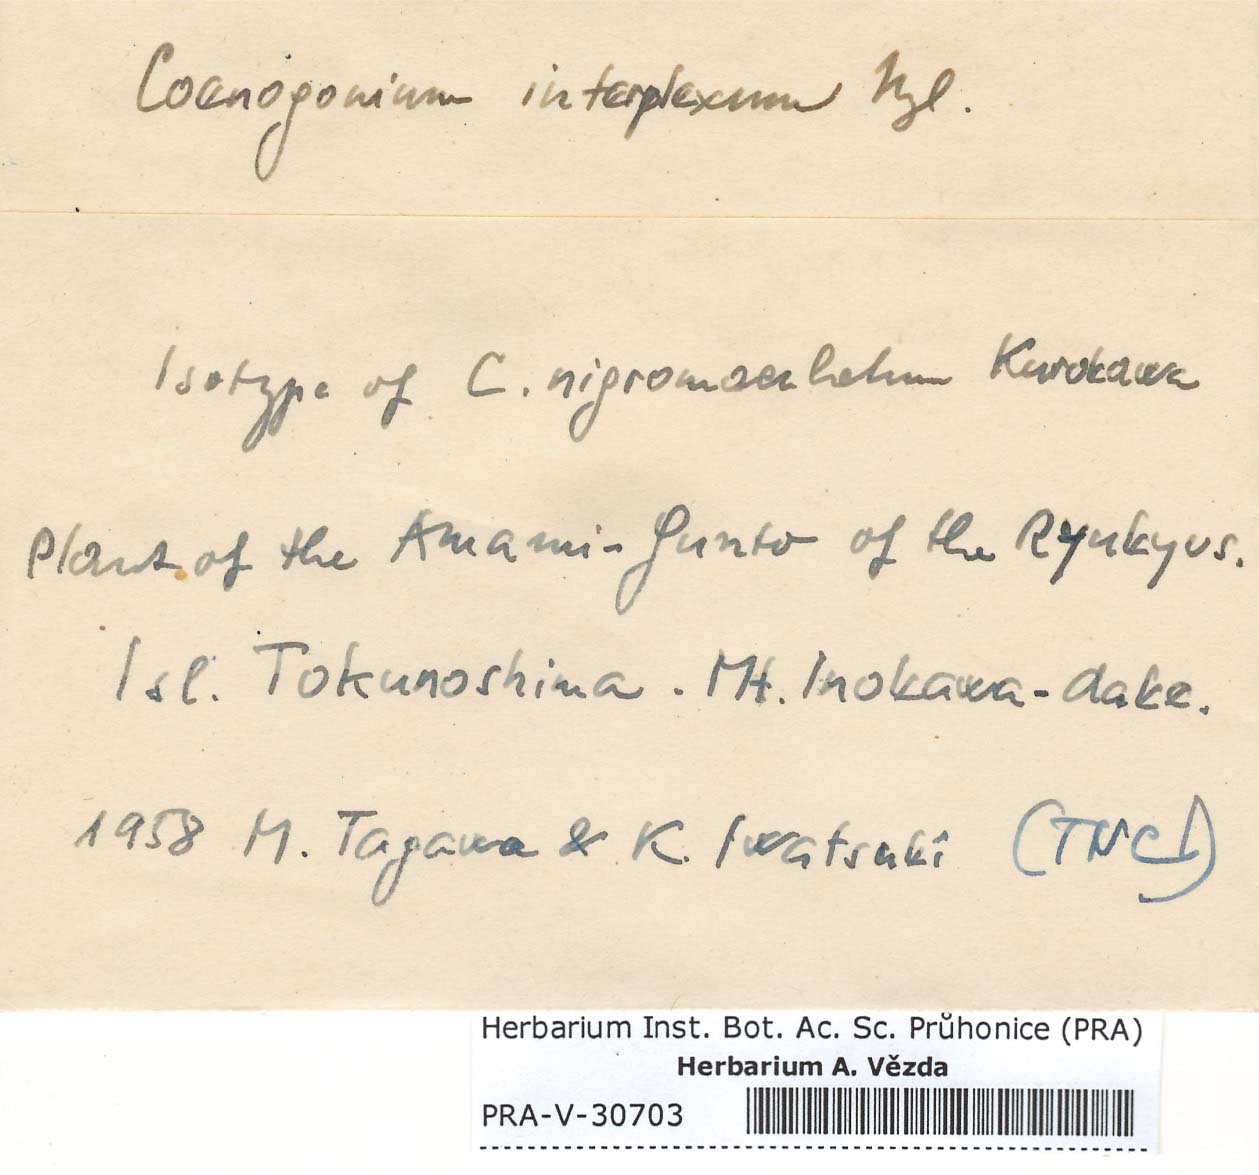 Coenogonium interplexum Nyl.
Isotype of C. nigromaculatum Kurokawa
Plants of the Amami-Gunto of the Ryukyus.
Isl. Tokunoshima. Mt. Inokawa-dake.
1958 M. Tagawa & K. Iwatsuki
Herbarium Inst. Bot. Ac. Sc. Průhonice (PRA)
Herbarium A. Vězda
PRA-V-30703